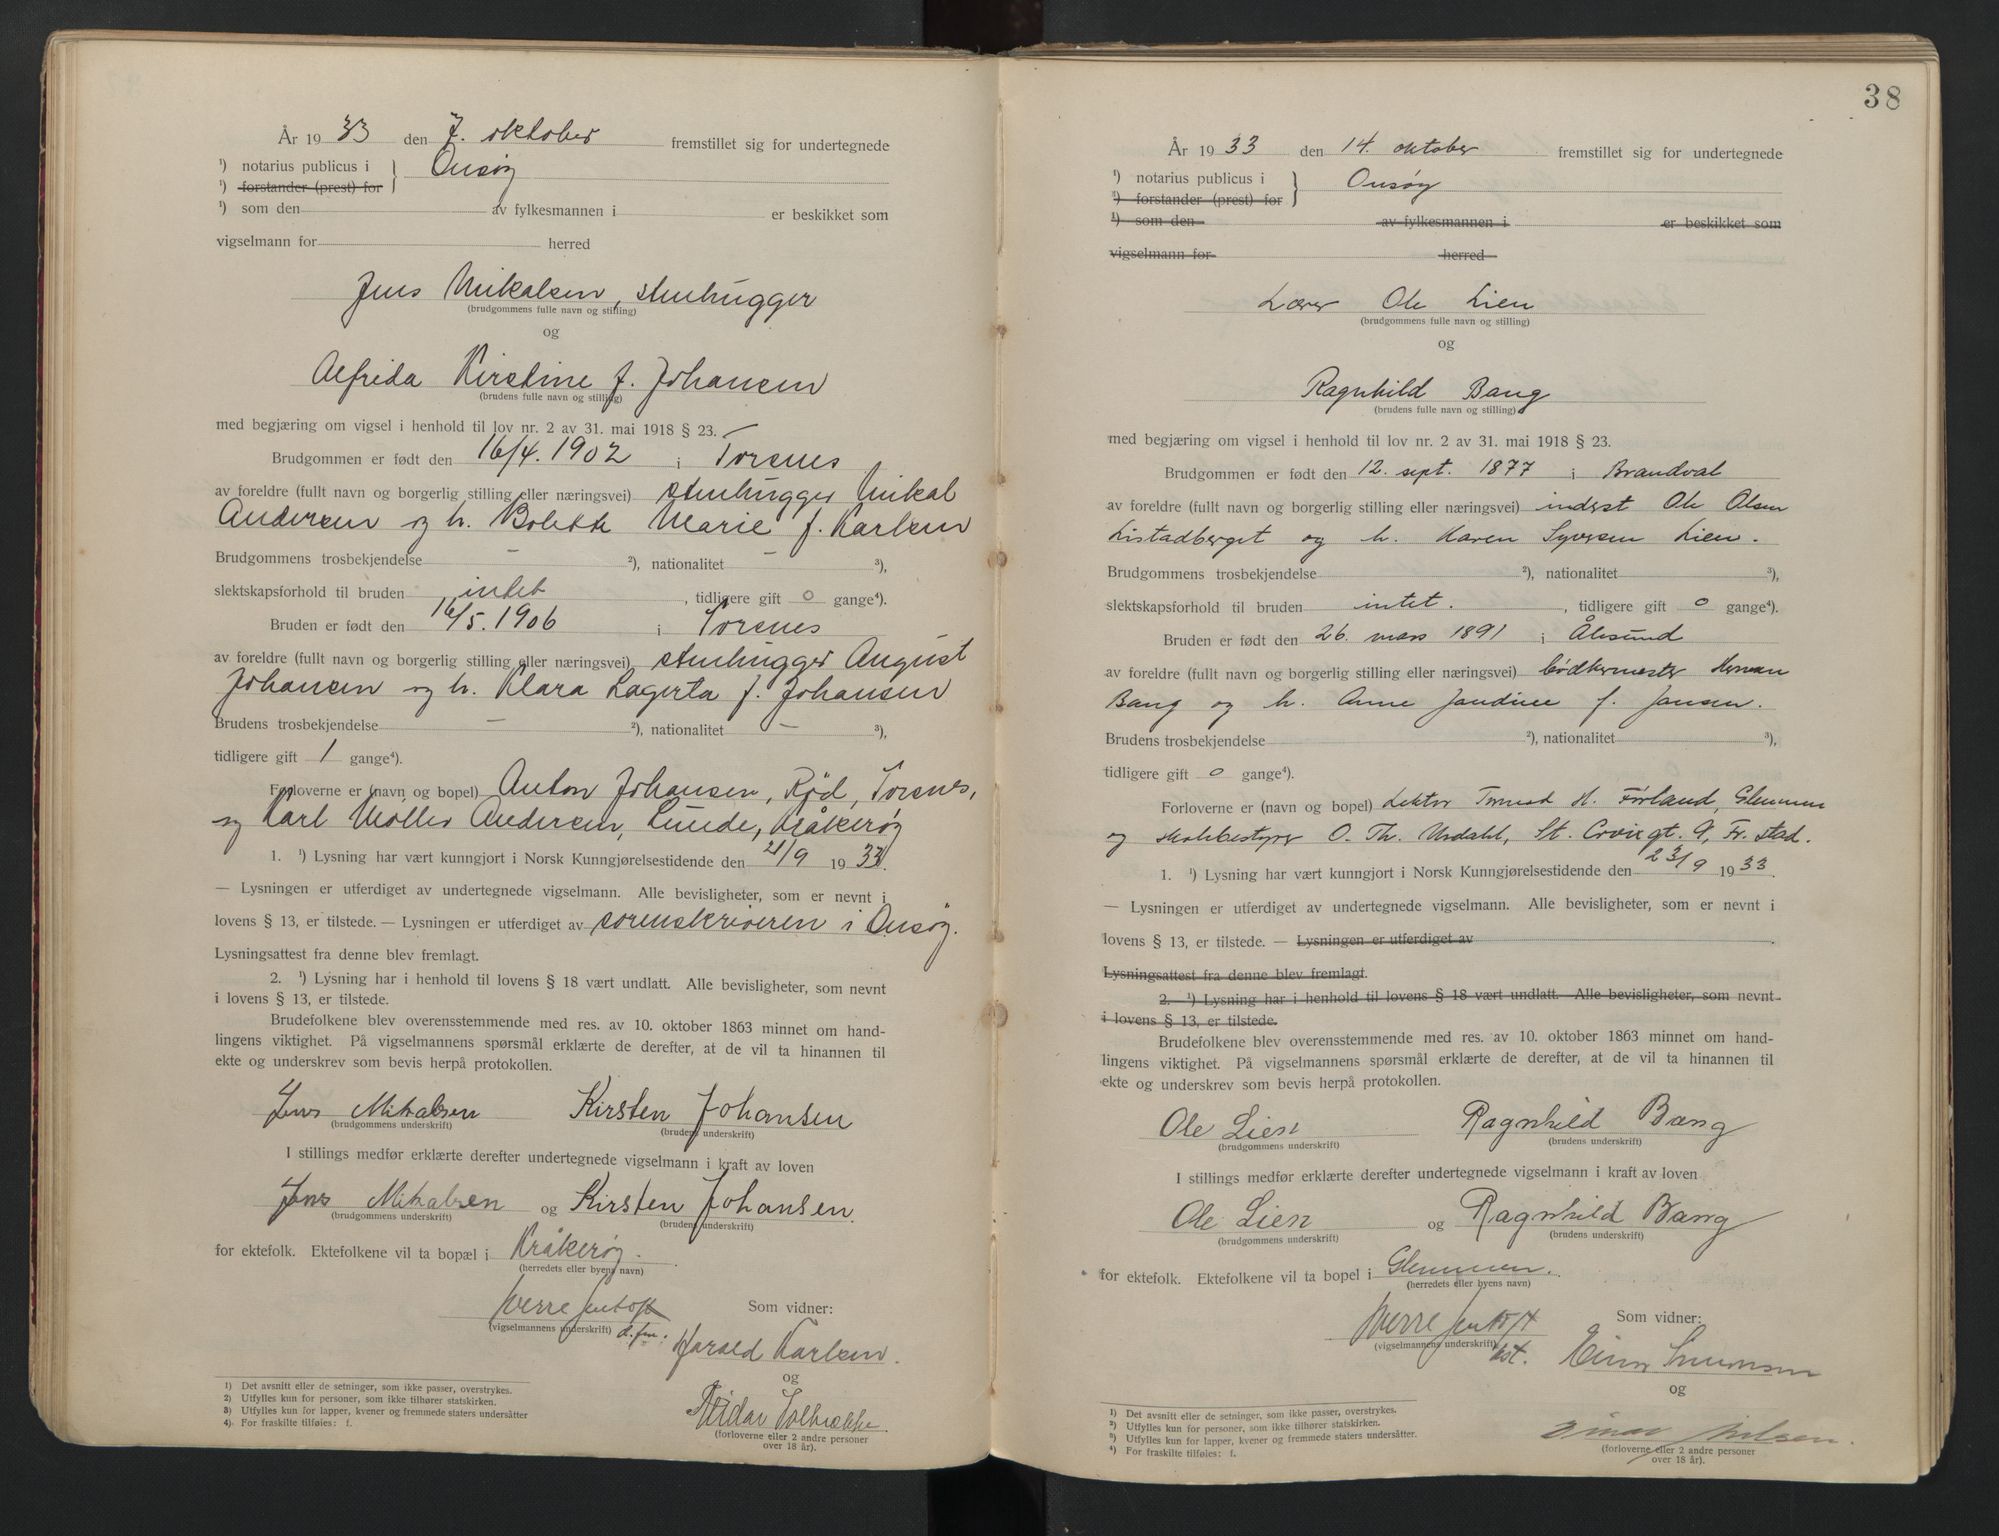 År 1933 den 7. oktober fremstillet sig for undertegnede
¹) notarius publicus i } Onsøy
¹) forstander (prest) for
¹) som den av fylkesmannen i er beskikket som
vigselmann for herred
Jens Mikalsen, stenhugger
(brudgommens fulle navn og stilling)
og
Alfrida Kirstine f. Johansen
(brudens fulle navn og stilling)
med begjæring om vigsel i henhold til lov nr. 2 av 31. mai 1918 § 23.
Brudgommen er født den 16/4. 1902 i Torsnes
av foreldre (fullt navn og borgerlig stilling eller næringsvei) stenhugger Mikal
Andersen og h. Bolette Marie f. Karlsen
Brudgommens trosbekjendelse - ²), nationalitet - ³),
slektskapsforhold til bruden intet, tidligere gift 0 gange⁴).
Bruden er født den 16/5. 1906 i Torsnes
av foreldre (fullt navn og borgerlig stilling eller næringsvei) stenhugger August
Johansen og h. Klara Lagerta f. Johansen
Brudens trosbekjendelse - ²), nationalitet - ³),
tidligere gift 1 gange⁴).
Forloverne er (navn og bopel) Anton Johansen, Rød, Torsnes,
og Karl Møller Andersen, Lunde, Kråkerøy
1. ¹) Lysning har vært kunngjort i Norsk Kunngjørelsestidende den 21/9 1933.
— Lysningen er utferdiget av undertegnede vigselmann. Alle bevisligheter, som er nevnt i
lovens § 13, er tilstede. — Lysningen er utferdiget av sorenskriveren i Onsøy.
Lysningsattest fra denne blev fremlagt.
2. ¹) Lysning har i henhold til lovens § 18 vært undlatt. Alle bevisligheter, som nevnt
i lovens § 13, er tilstede.
Brudefolkene blev overensstemmende med res. av 10. oktober 1863 minnet om hand-
lingens viktighet. På vigselmannens spørsmål erklærte de derefter, at de vil ta hinannen til
ekte og underskrev som bevis herpå protokollen.
Jens Mikalsen Kirsten Johansen
(brudgommens underskrift) (brudens underskrift)
I stillings medfør erklærte derefter undertegnede vigselmann i kraft av loven
Jens Mikalsen og Kirsten Johansen.
(brudgommens underskrift) (brudens underskrift)
for ektefolk. Ektefolkene vil ta bopæl i Kråkerøy.
(herredets eller byens navn)
Sverre Jentoft Som vidner:
(vigselmannens underskrift) d. fm.
Harald Karlsen.
og
Reidar Solbrække
(forloverne eller 2 andre personer
over 18 år).
1) Det avsnitt eller de setninger, som ikke passer, overstrykes.
2) Utfylles kun for personer, som ikke tilhører statskirken.
3) Utfylles kun for lapper, kvener og fremmede staters undersåtter
4) For fraskilte tilføies: f.
38
År 1933 den 14. oktober fremstillet sig for undertegnede
¹) notarius publicus i } Onsøy
¹) forstander (prest) for
¹) som den av fylkesmannen i er beskikket som
vigselmann for herred
Lærer Ole Lien
(brudgommens fulle navn og stilling)
og
Ragnhild Bang
(brudens fulle navn og stilling)
med begjæring om vigsel i henhold til lov nr. 2 av 31. mai 1918 § 23.
Brudgommen er født den 12. sept. 1877 i Brandval
av foreldre (fullt navn og borgerlig stilling eller næringsvei) inderst Ole Olsen
Listadberget og h. Karen Syversen Lien.
Brudgommens trosbekjendelse ²), nationalitet ³),
slektskapsforhold til bruden intet., tidligere gift 0 gange⁴).
Bruden er født den 26. mars 1891 i Ålesund
av foreldre (fullt navn og borgerlig stilling eller næringsvei) bødkermester Herman
Bang og h. Anne Jandine f. Jansen.
Brudens trosbekjendelse ²), nationalitet ³),
tidligere gift 0 gange⁴).
Forloverne er (navn og bopel) Lektor H. Førland, Glemmen
og skolebestyrer O. Th. Urdahl, St. Croixgt. 9, Fr.stad.
1. ¹) Lysning har vært kunngjort i Norsk Kunngjørelsestidende den 23/9 1933.
— Lysningen er utferdiget av undertegnede vigselmann. Alle bevisligheter, som er nevnt i
lovens § 13, er tilstede. — Lysningen er utferdiget av .
Lysningsattest fra denne blev fremlagt.
2. ¹) Lysning har i henhold til lovens § 18 vært undlatt. Alle bevisligheter, som nevnt
i lovens § 13, er tilstede.
Brudefolkene blev overensstemmende med res. av 10. oktober 1863 minnet om hand-
lingens viktighet. På vigselmannens spørsmål erklærte de derefter, at de vil ta hinannen til
ekte og underskrev som bevis herpå protokollen.
Ole Lien Ragnhild Bang
(brudgommens underskrift) (brudens underskrift)
I stillings medfør erklærte derefter undertegnede vigselmann i kraft av loven
Ole Lien og Ragnhild Bang
(brudgommens underskrift) (brudens underskrift)
for ektefolk. Ektefolkene vil ta bopel i Glemmen.
(herredets eller byens navn)
Sverre Jentoft Som vidner:
(vigselmannens underskrift)
og
Nilsen.
(forloverne eller 2 andre personer
over 18 år).
1) Det avsnitt eller de setninger, som ikke passer, overstrykes.
2) Utfylles kun for personer, som ikke tilhører statskirken.
3) Utfylles kun for lapper, kvener og fremmede staters undersåtter.
4) For fraskilte tilføies: f.